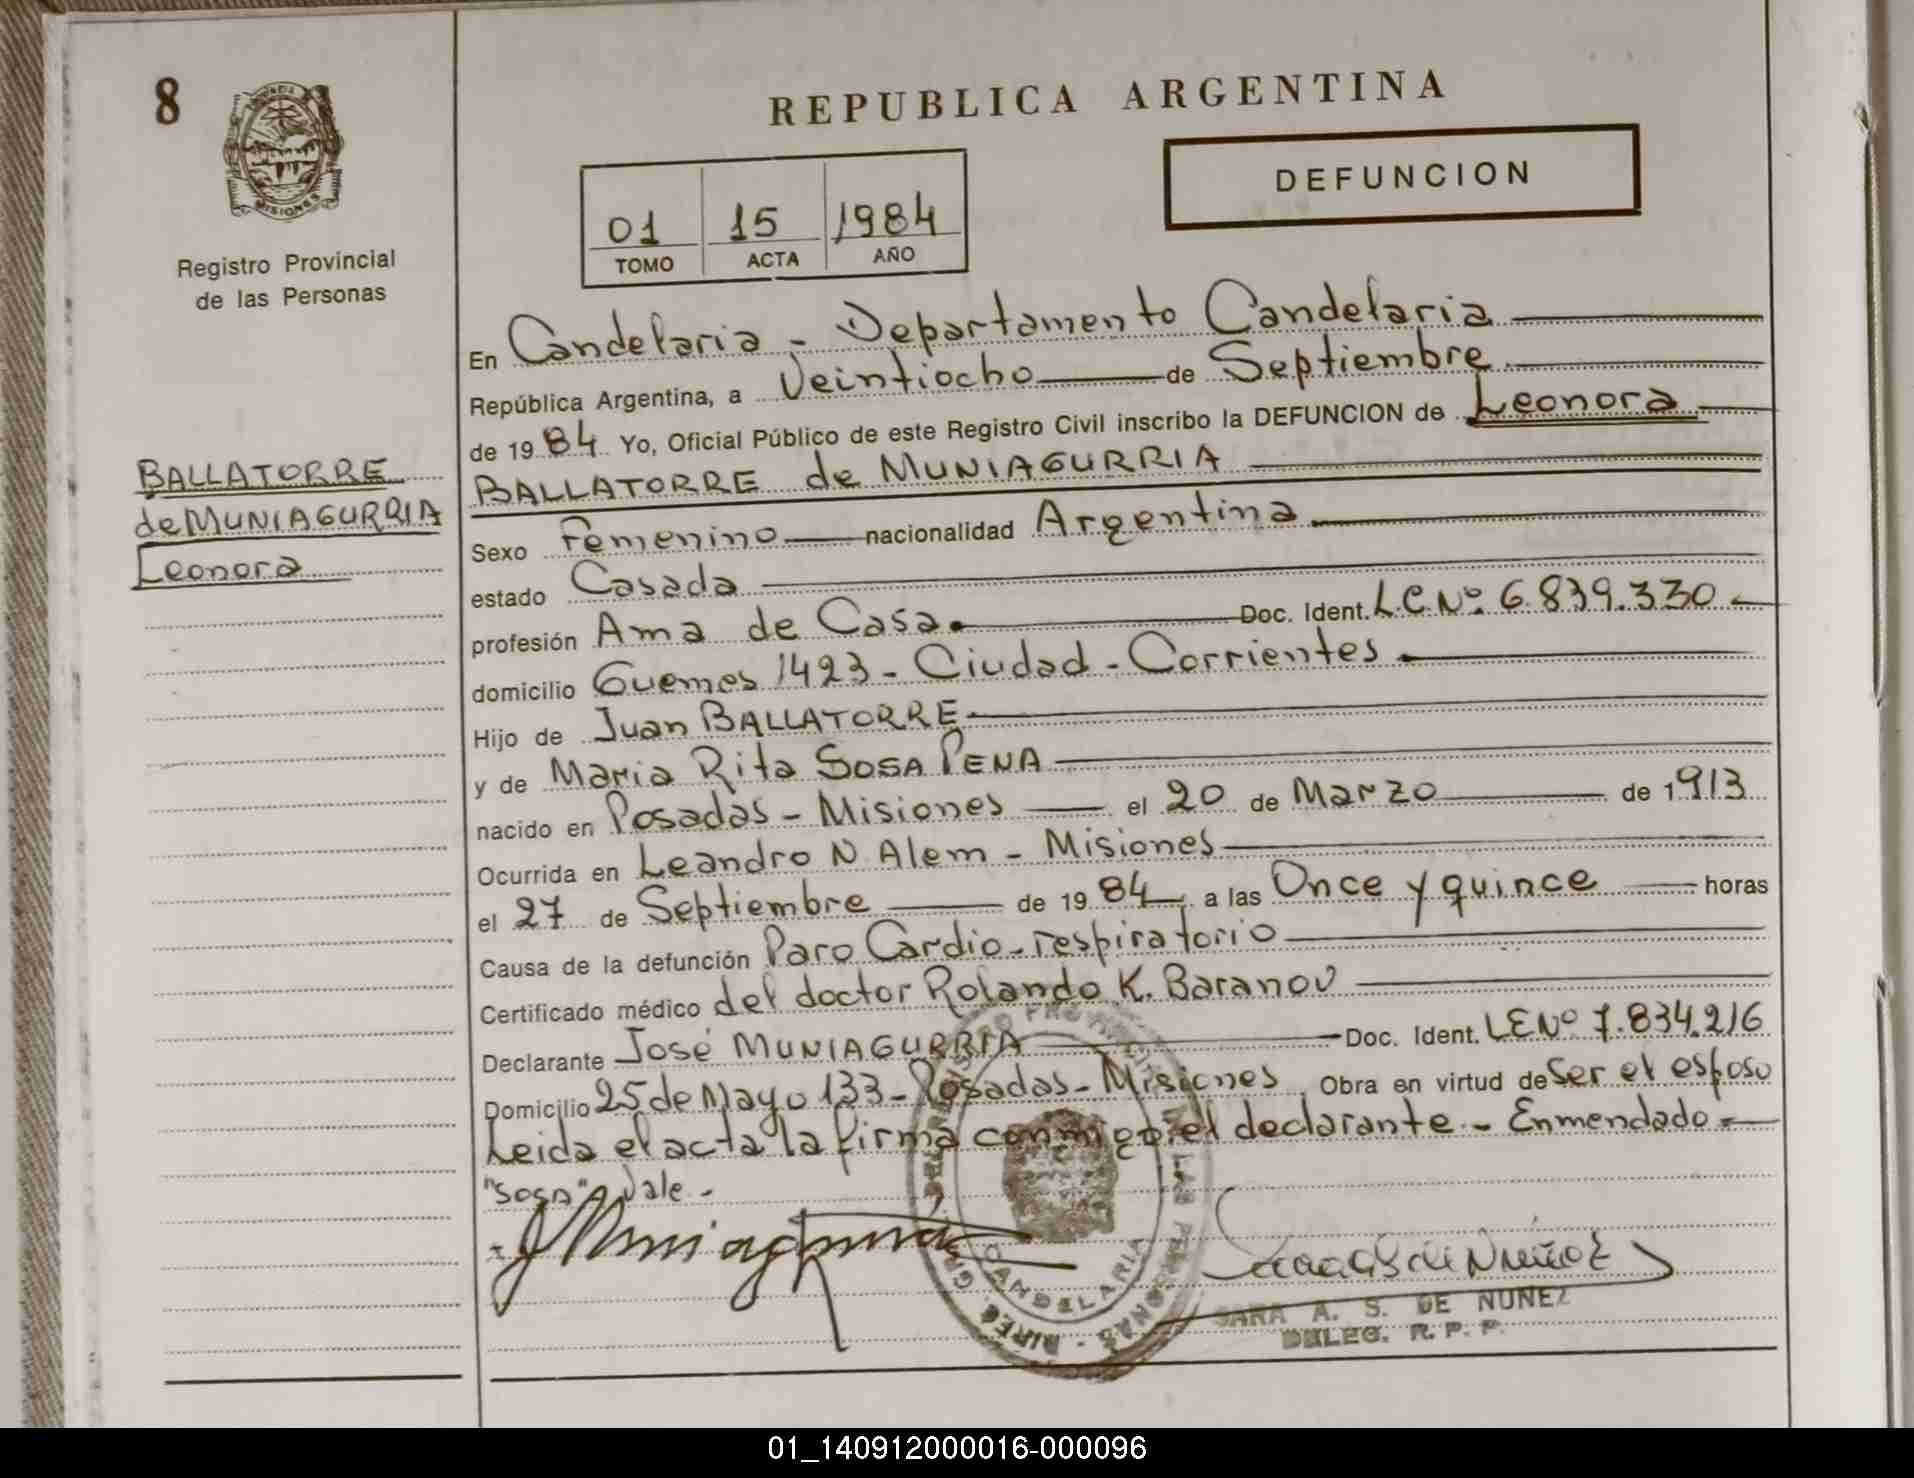 8
MISIONES
Registro Provincial
de las Personas
BALLATORRE
de MUNIAGURRIA
Leonora
REPUBLICA ARGENTINA
DEFUNCION
01 15 1984
TOMO ACTA AÑO
En Candelaria - Departamento Candelaria
República Argentina, a Veintiocho de Septiembre
de 1984 Yo, Oficial Público de este Registro Civil inscribo la DEFUNCION de Leonora
BALLATORRE de MUNIAGURRIA
Sexo Femenino nacionalidad Argentina
estado Casada
profesión Ama de Casa. Doc. Ident. L.C.Nº. 6.839.330-
domicilio Guemes 1423 - Ciudad - Corrientes
Hijo de Juan BALLATORRE
y de Maria Rita SOSA PENA
nacido en Posadas - Misiones el 20 de Marzo de 1913
Ocurrida en Leandro N Alem - Misiones
el 27 de Septiembre de 1984 a las Once y quince horas
Causa de la defunción Paro Cardio-respiratorio
Certificado médico del doctor Rolando K. Baranov
Declarante José MUNIAGURRIA Doc. Ident. LENº 7.834.216
Domicilio 25 de Mayo 133 - Posadas - Misiones Obra en virtud de Ser el esposo
Leida el acta la firma conmigo el declarante - Enmendado =
"SOSA" Vale -
J Muniagurria
CANDELARIA
SARA A. S. DE NUÑEZ
DELEG. R. P. P.
01_140912000016-000096